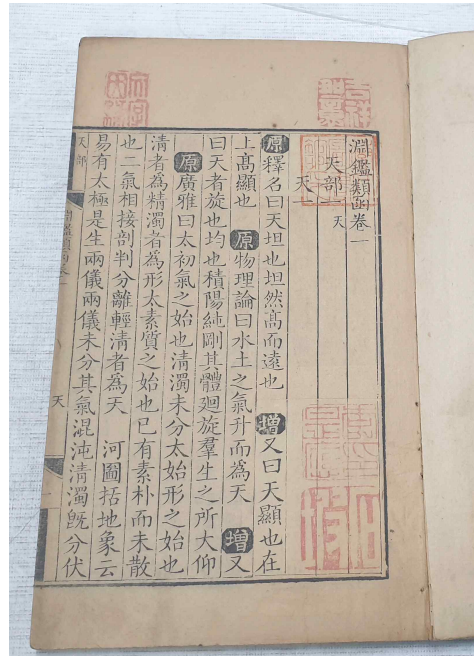 淵鑑類函卷一
天部一 天
天一
原釋名曰天坦也坦然高而遠也 增又曰天顯也在
上高顯也 原物理論曰水土之氣升而為天 增又
曰天者旋也均也積陽純剛其體廻旋羣生之所大仰
原廣雅曰太初氣之始也清濁未分太始形之始也
清者為精濁者為形太素質之始也已有素朴而未散
也二氣相接剖判分離輕清者為天 河圖括地象云
易有太極是生兩儀兩儀未分其氣混沌清濁旣分伏
天部
天